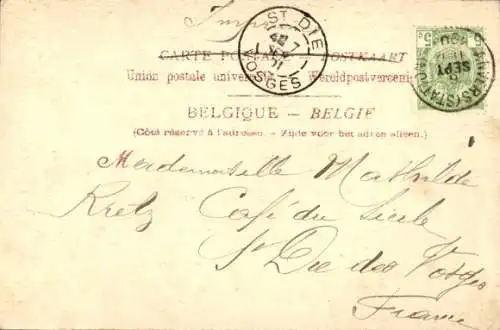 CARTE POSTALE — POSTKAART
Union postale universelle Wereldpostvereeniging
BELGIQUE - BELGIË
(Côté réservé à l'adresse. - Zijde voor het adres alleen.)
ST DIÉ
VOSGES
SEPT
Mademoiselle Mathilde
Kretz Café du Siècle
St Dié des Vosges
France